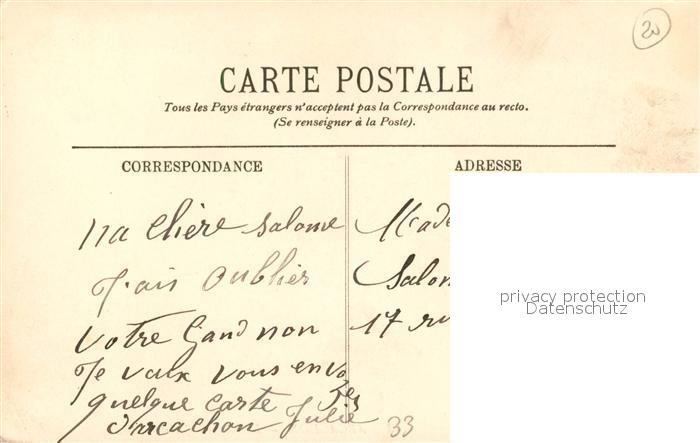 20
CARTE POSTALE
Tous les Pays étrangers n'acceptent pas la Correspondance au recto.
(Se renseigner à la Poste).
CORRESPONDANCE
ma chère Salome
J'ais oublier
votre Gand non
Je vaux vous envo
yer
quelque carte
d'arcachon Julie
33
ADRESSE
Made
Salom
17 ru
privacy protection
Datenschutz